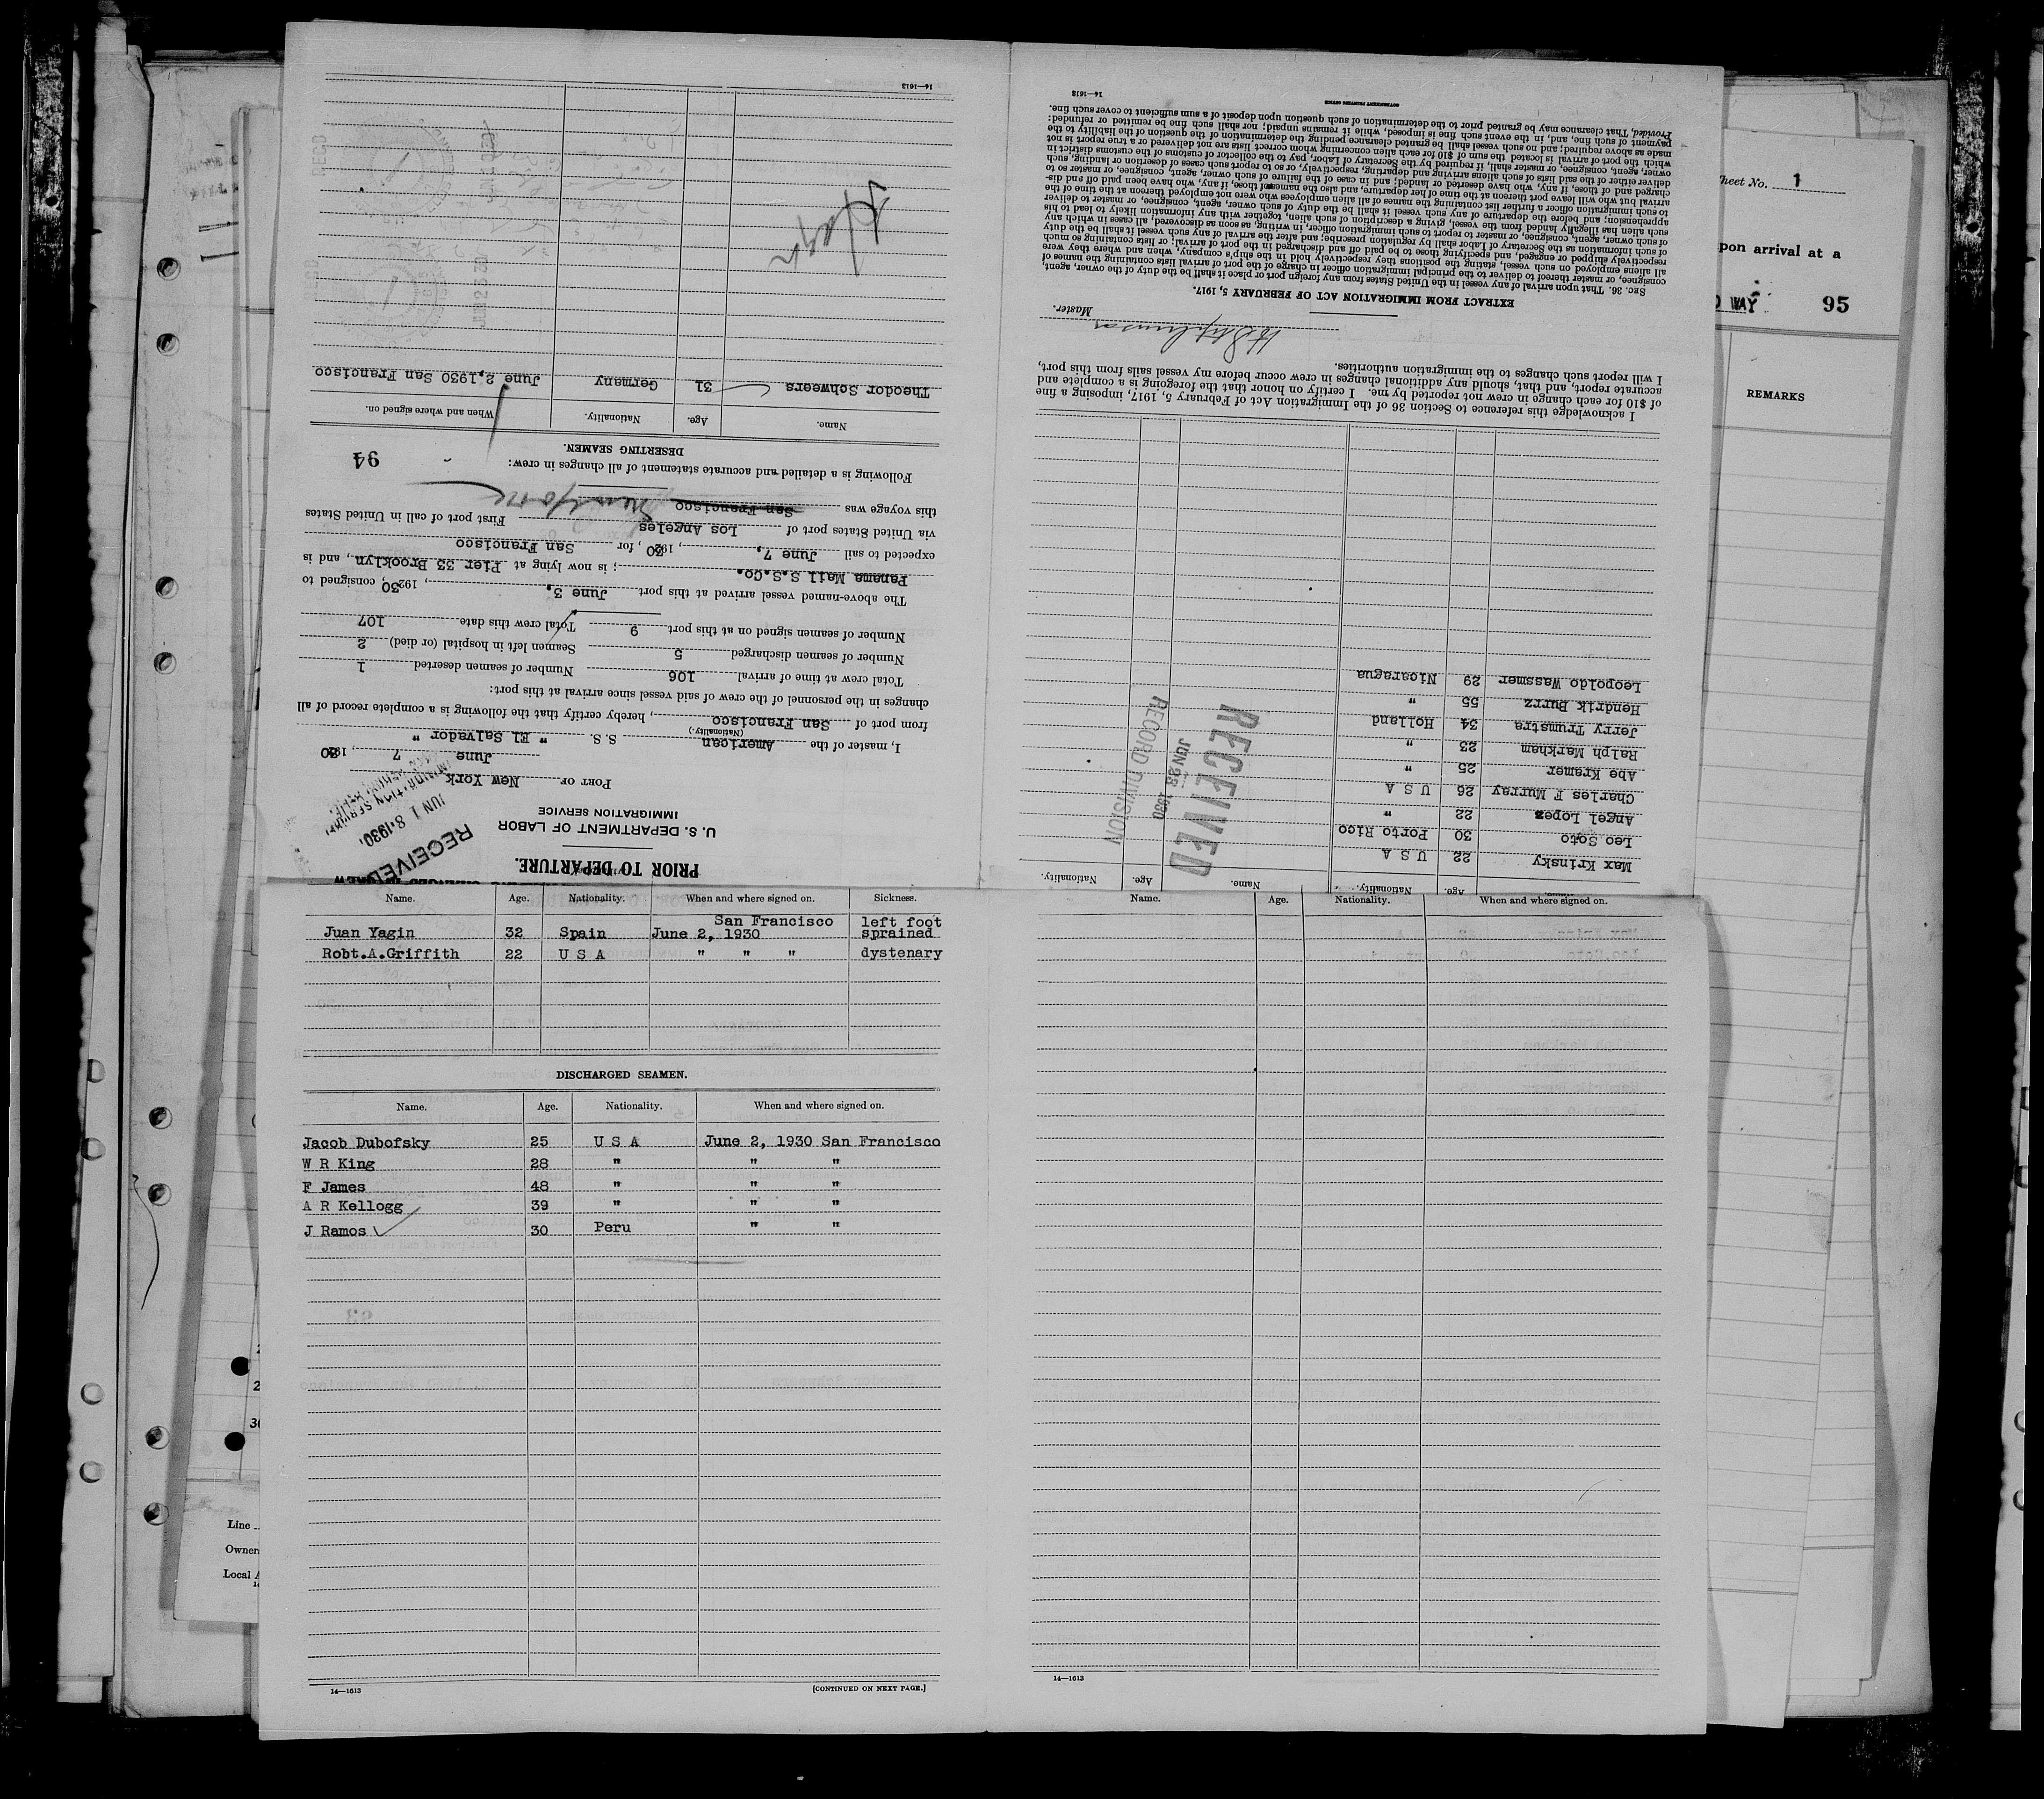 PRIOR TO DEPARTURE.
U. S. DEPARTMENT OF LABOR
IMMIGRATION SERVICE
RECEIVED
JUN 18 1930
PORT OF New York
June 7, 1930
I, master of the American S. S. " El Salvador "
(Nationality.)
from port of San Francisco, hereby certify that the following is a complete record of all
changes in the personnel of the crew of said vessel since arrival at this port:
Total crew at time of arrival 106 Number of seamen deserted 1
Number of seamen discharged 5 Seamen left in hospital (or died) 2
Number of seamen signed on at this port 9 Total crew this date 107
The above-named vessel arrived at this port June 3, 1930, consigned to
Panama Mail S.S.Co.; is now lying at Pier 33 Brooklyn, and is
expected to sail June 7, 1930, for San Francisco
via United States port of Los Angeles First port of call in United States
this voyage was San Francisco New York
Following is a detailed and accurate statement of all changes in crew:
94
DESERTING SEAMEN.
Name. Age. Nationality. When and where signed on.
Theodor Schweers 31 Germany June 2, 1930 San Francisco
14—1613
Name. Age. Nationality. Name. Age. Nationality.
Max Krinsky 22 U S A
Leo Soto 30 Porto Rico
Angel Lopez 22 "
Charles F Murray 26 U S A
Abe Kramer 25 "
Ralph Markham 23 "
Jerry Trumstra 34 Holland
Hendrik Burrz 55 "
Leopoldo Wassmer 29 Nicaragua
RECEIVED
JUN 28 1930
RECORD DIVISION
I acknowledge this reference to Section 36 of the Immigration Act of February 5, 1917, imposing a fine
of $10 for each change in crew not reported by me. I certify on honor that the foregoing is a complete and
accurate report, and that, should any additional changes in crew occur before my vessel sails from this port,
I will report such changes to the immigration authorities.
Master.
EXTRACT FROM IMMIGRATION ACT OF FEBRUARY 5, 1917.
SEC. 36. That upon arrival of any vessel in the United States from any foreign port or place it shall be the duty of the owner, agent,
consignee, or master thereof to deliver to the principal immigration officer in charge of the port of arrival lists containing the names of
all aliens employed on such vessel, stating the positions they respectively hold in the ship's company, when and where they were
respectively shipped or engaged, and specifying those to be paid off and discharged in the port of arrival; or lists containing so much
of such information as the Secretary of Labor shall by regulation prescribe; and after the arrival of any such vessel it shall be the duty
of such owner, agent, consignee, or master to report to such immigration officer, in writing, as soon as discovered, all cases in which any
such alien has illegally landed from the vessel, giving a description of such alien, together with any information likely to lead to his
apprehension; and before the departure of any such vessel it shall be the duty of such owner, agent, consignee, or master to deliver
to such immigration officer a further list containing the names of all alien employees who were not employed thereon at the time of the
arrival but who will leave port thereon at the time of her departure, and also the names of those, if any, who have been paid off and dis-
charged and of those, if any, who have deserted or landed; and in case of the failure of such owner, agent, consignee, or master so to
deliver either of the said lists of such aliens arriving and departing, respectively, or so to report such cases of desertion or landing, such
owner, agent, consignee, or master shall, if required by the Secretary of Labor, pay to the collector of customs of the customs district in
which the port of arrival is located the sum of $10 for each alien concerning whom correct lists are not delivered or a true report is not
made as above required; and no such vessel shall be granted clearance pending the determination of the question of the liability to the
payment of such fine, and, in the event such fine is imposed, while it remains unpaid; nor shall such fine be remitted or refunded:
Provided, That clearance may be granted prior to the determination of such question upon deposit of a sum sufficient to cover such fine.
GOVERNMENT PRINTING OFFICE
14—1613
Sheet No. 1
upon arrival at a
WAY 95
REMARKS
Name. Age. Nationality. When and where signed on. Sickness.
Juan Yagin 32 Spain June 2, 1930 San Francisco left foot sprained
Robt.A.Griffith 22 U S A " " " dystenary
DISCHARGED SEAMEN.
Name. Age. Nationality. When and where signed on.
Jacob Dubofsky 25 U S A June 2, 1930 San Francisco
W R King 28 " " "
F James 48 " " "
A R Kellogg 39 " " "
J Ramos 30 Peru " "
14—1613 [CONTINUED ON NEXT PAGE.]
Name. Age. Nationality. When and where signed on.
14—1613
Line
Owner
Local A